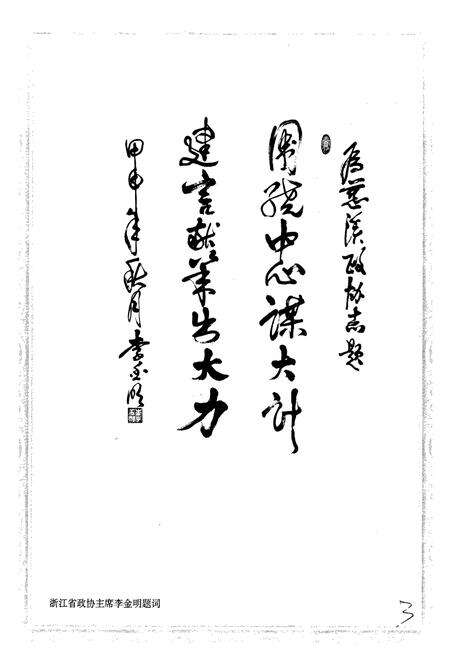 为慈溪政协志题
围绕中心谋大计
建言献策出大力
甲申年秋月李金明
浙江省政协主席李金明题词
3